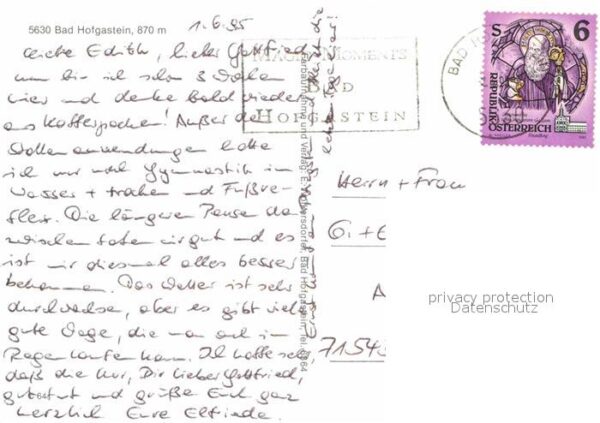 5630 Bad Hofgastein, 870 m
1.6.95
Liebe Edith, lieber Gottfried,
nun bin ich schon 3 Wochen
hier und denke bald wieder
ans Kofferpacken! Außer den
anwendungen hatte
ich nur noch Gymnastik im
Wasser + trocken und Fußre-
flex. Die längere Pause da-
zwischen taten mir gut und es
ist mir diesmal alles besser
bekommen. Das Wetter ist sehr
durchwachsen, aber es gibt viele
gute Wege, die man auch im
Regen laufen kann. Ich hoffe sehr,
daß die Kur, Dir lieber Gottfried,
guttut und grüße Euch ganz
herzlich Eure Elfriede.
MAGIC MOMENTS
BAD
HOFGASTEIN
BAD
S 6
REPUBLIK
ÖSTERREICH
Herrn + Frau
G. + E
A
7154
privacy protection
Datenschutz